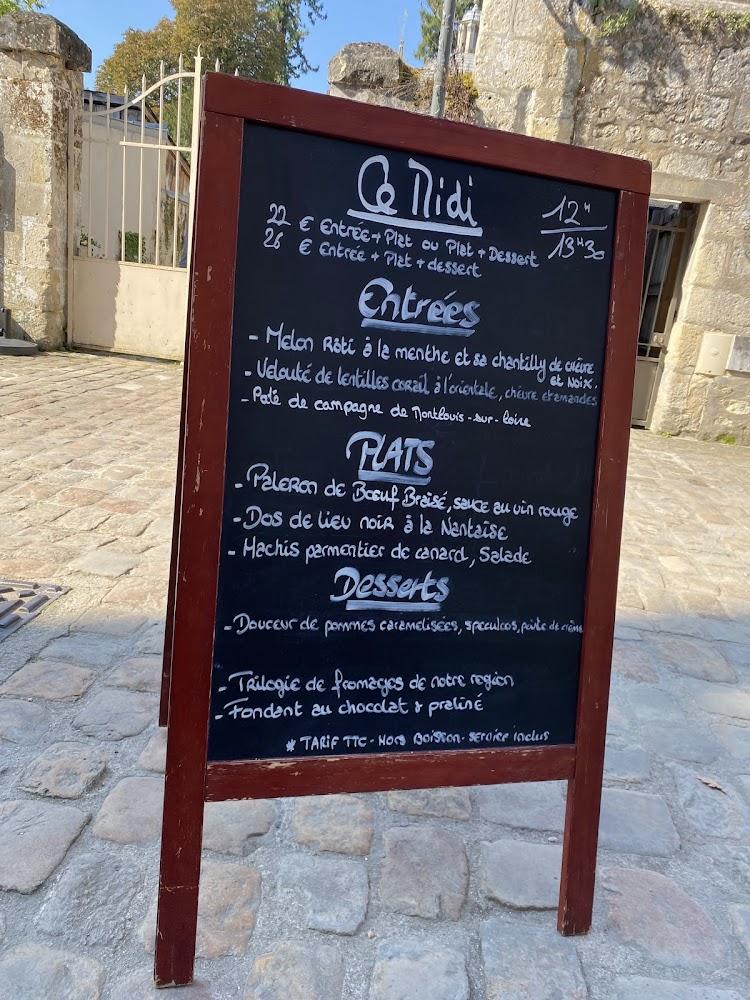 Ce Midi
12H
13H30
22 € Entrée + Plat ou Plat + Dessert
26 € Entrée + Plat + dessert
Entrées
- Melon Rôti à la menthe et sa chantilly de chèvre
et Noix.
- Velouté de lentilles corail à l'orientale, chèvre et amandes
- Paté de campagne de Montlouis-sur-Loire
PLATS
- Paleron de Bœuf Braisé, sauce au vin rouge
- Dos de lieu noir à la Nantaise
- Hachis parmentier de canard, Salade
Desserts
- Douceur de pommes caramelisées, speculoos, pointe de crème
- Trilogie de fromages de notre région
- Fondant au chocolat & praliné
* TARIF TTC - Hors Boisson - service inclus